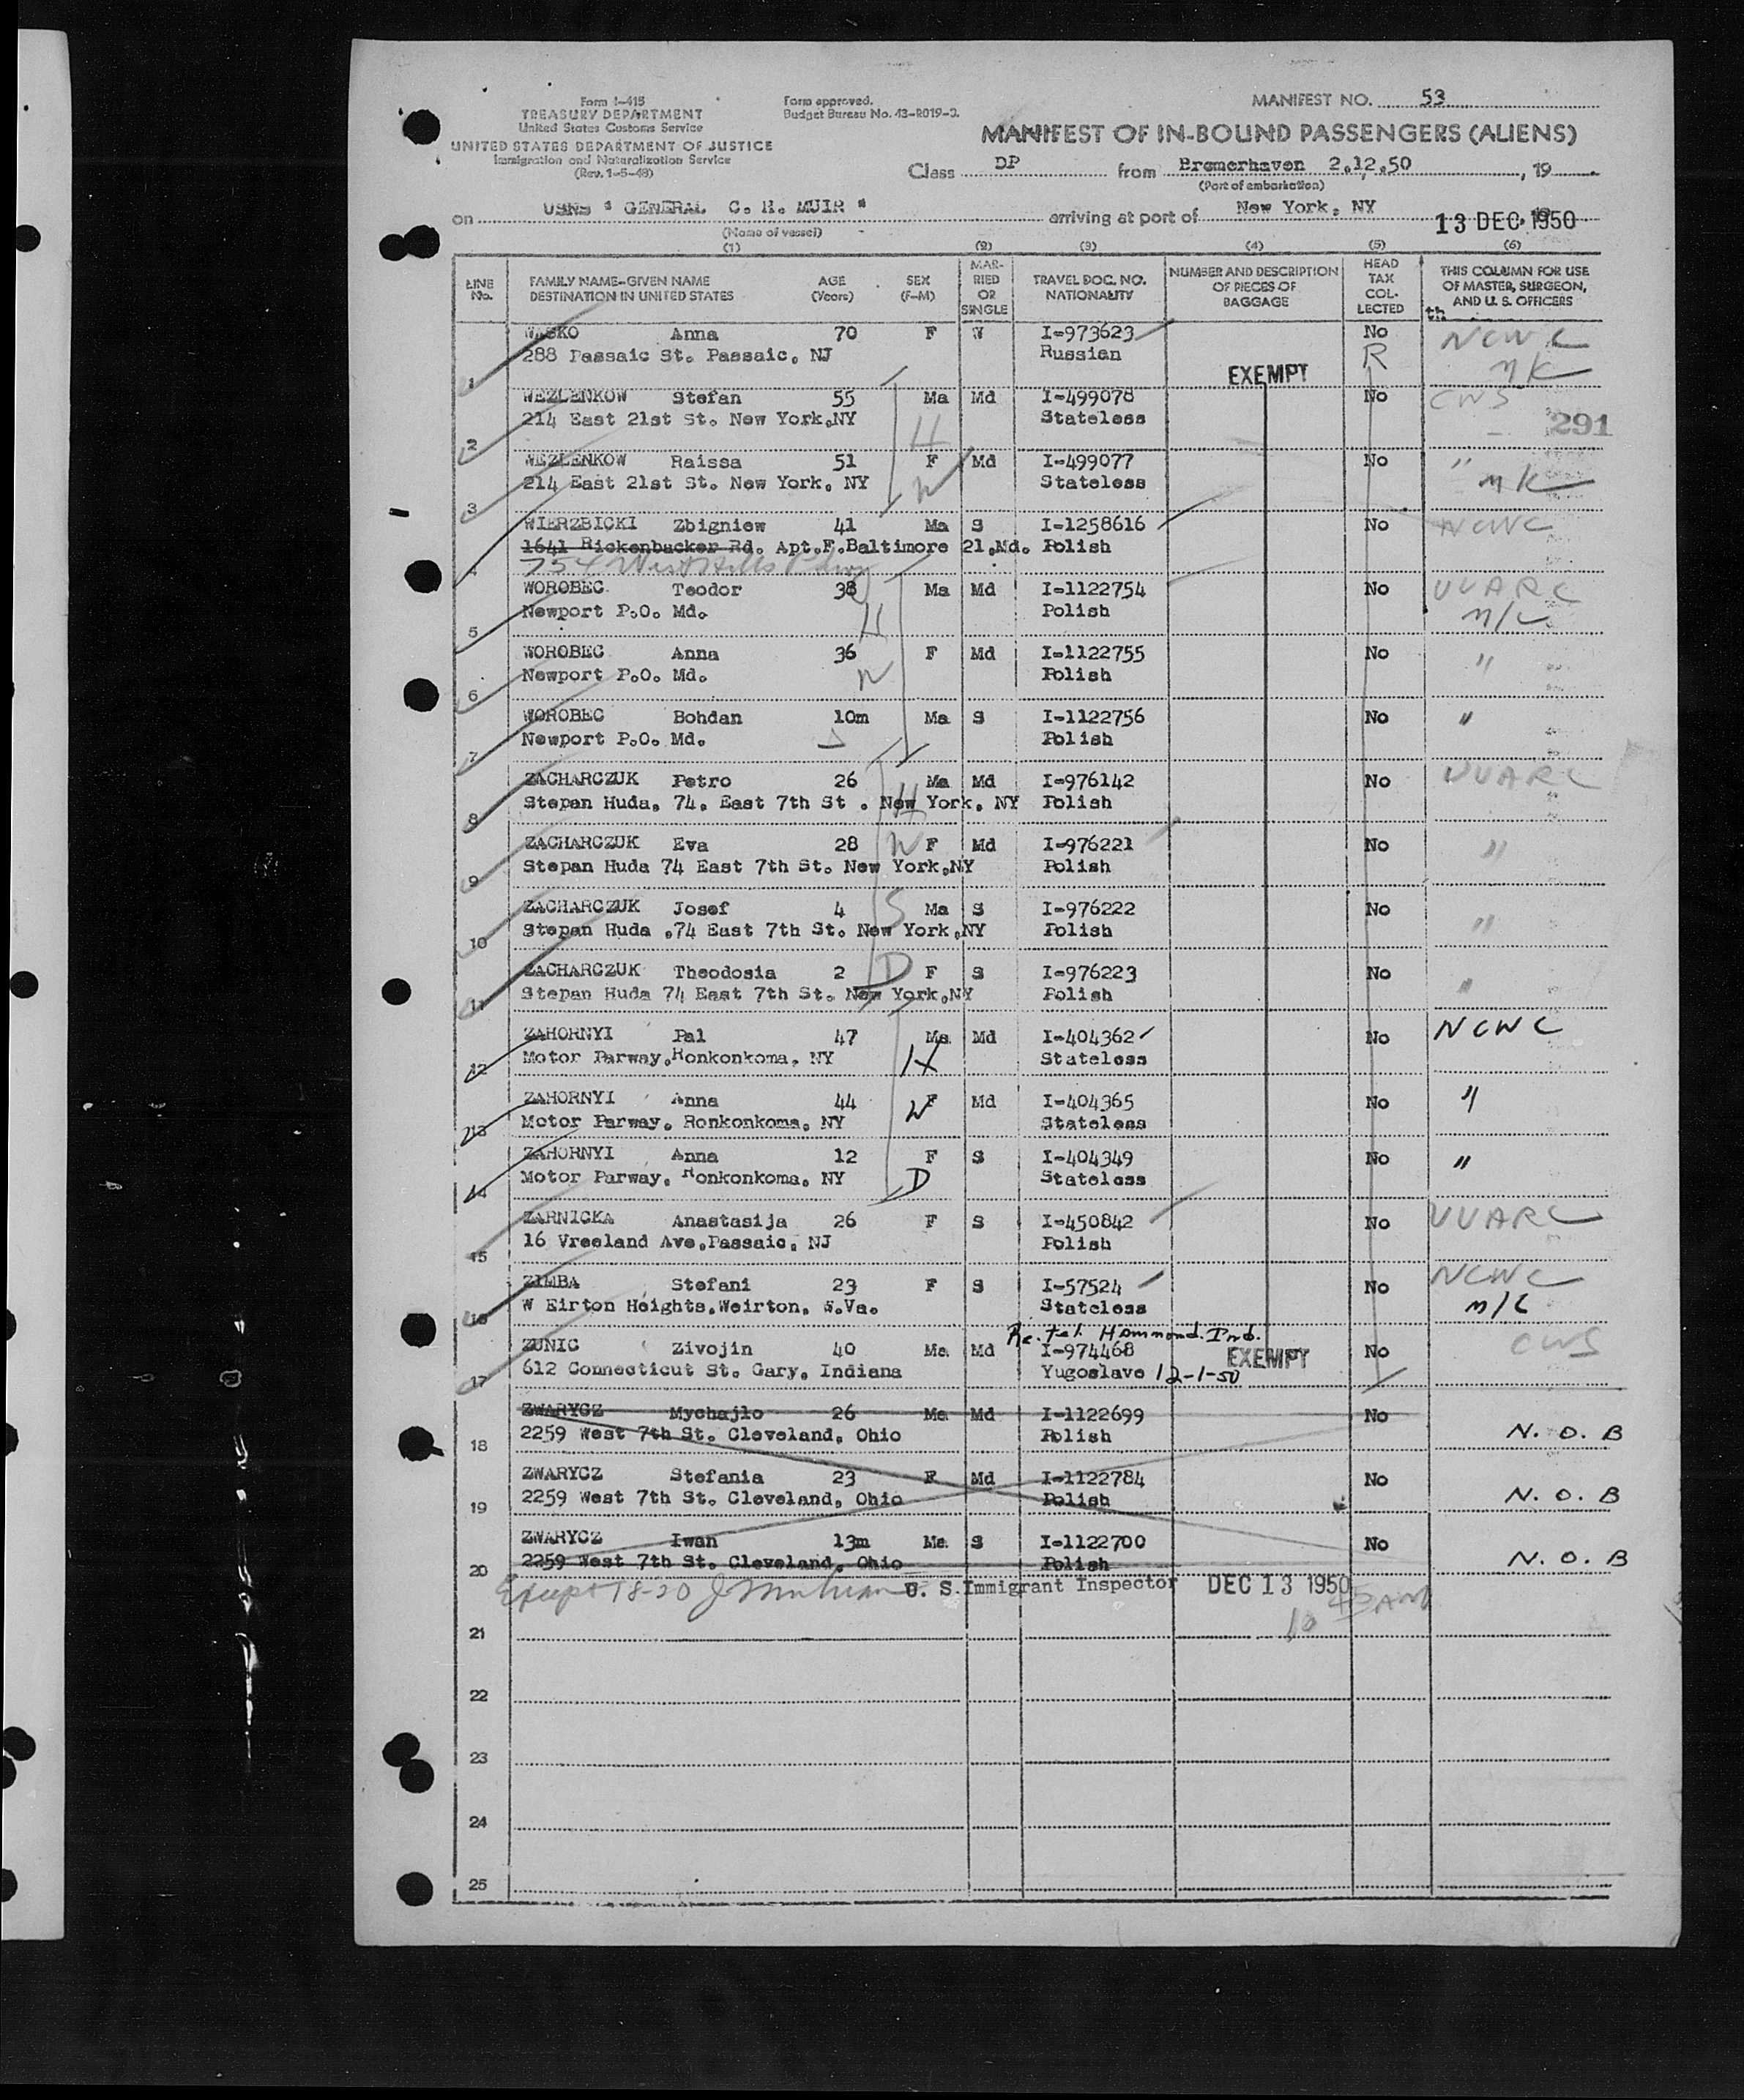 Form I-415
TREASURY DEPARTMENT
United States Customs Service
UNITED STATES DEPARTMENT OF JUSTICE
Immigration and Naturalization Service
(Rev. 1-5-48)
Form approved.
Budget Bureau No. 43-R019-3.
MANIFEST NO. 53
MANIFEST OF IN-BOUND PASSENGERS (ALIENS)
Class DP from Bremerhaven 2.12.50, 19
(Port of embarkation)
on USNS " GENERAL C. H. MUIR " arriving at port of New York, NY 13 DEC 1950
(Name of vessel)
(1) (2) (3) (4) (5) (6)
LINE No. FAMILY NAME-GIVEN NAME DESTINATION IN UNITED STATES AGE (Years) SEX (F-M) MARRIED OR SINGLE TRAVEL DOC. NO. NATIONALITY NUMBER AND DESCRIPTION OF PIECES OF BAGGAGE HEAD TAX COLLECTED THIS COLUMN FOR USE OF MASTER, SURGEON, AND U. S. OFFICERS
th
WASKO Anna 70 F W I-973623 No NCWC
288 Passaic St. Passaic, NJ Russian R nK
1 EXEMPT
WEZLENKOW Stefan 55 Ma Md I-499078 No CWS
214 East 21st St. New York,NY Stateless 291
2 H
WEZLENKOW Raissa 51 F Md I-499077 No "
214 East 21st St. New York, NY W Stateless nK
3
WIERZBICKI Zbigniew 41 Ma S I-1258616 No NCWC
1641 Rickenbacker Rd. Apt.F.Baltimore 21.Md. Polish
4 754 West Hills
WOROBEC Teodor 38 Ma Md I-1122754 No UUARC
Newport P.O. Md. H Polish n/c
5
WOROBEC Anna 36 F Md I-1122755 No "
Newport P.O. Md. W Polish
6
WOROBEC Bohdan 10m Ma S I-1122756 No "
Newport P.O. Md. S Polish
7
ZACHARCZUK Petro 26 Ma Md I-976142 No UUARC
Stepan Huda, 74, East 7th St . New York, NY Polish
8 H
ZACHARCZUK Eva 28 W F Md I-976221 No "
Stepan Huda 74 East 7th St. New York,NY Polish
9
ZACHARCZUK Josef 4 S Ma S I-976222 No "
Stepan Huda ,74 East 7th St. New York,NY Polish
10
ZACHARCZUK Theodosia 2 D F S I-976223 No "
Stepan Huda 74 East 7th St. New York,NY Polish
11
ZAHORNYI Pal 47 Ma Md I-404362 No NCWC
Motor Parway,Ronkonkoma, NY H Stateless
12
ZAHORNYI Anna 44 W F Md I-404365 No "
Motor Parway, Ronkonkoma, NY Stateless
13
ZAHORNYI Anna 12 F S I-404349 No "
Motor Parway, Ronkonkoma, NY D Stateless
14
ZARNICKA Anastasija 26 F S I-450842 No UUARC
16 Vreeland Ave,Passaic, NJ Polish
15
ZIMBA Stefani 23 F S I-57524 No NCWC
W Eirton Heights,Weirton, W.Va. Stateless n/c
16
Re. tel. Hammond. Ind.
ZUNIC Zivojin 40 Ma Md I-974468 EXEMPT No CWS
612 Connecticut St. Gary, Indiana Yugoslave 12-1-50
17
ZWARYCZ Mychajlo 26 Ma Md I-1122699 No
2259 West 7th St. Cleveland, Ohio Polish N. O. B
18
ZWARYCZ Stefania 23 F Md I-1122784 No
2259 West 7th St. Cleveland, Ohio Polish N. O. B
19
ZWARYCZ Iwan 13m Ma S I-1122700 No
2259 West 7th St. Cleveland, Ohio Polish N. O. B
20
Except 18-20 U. S. Immigrant Inspector DEC 13 1950
10
21
22
23
24
25